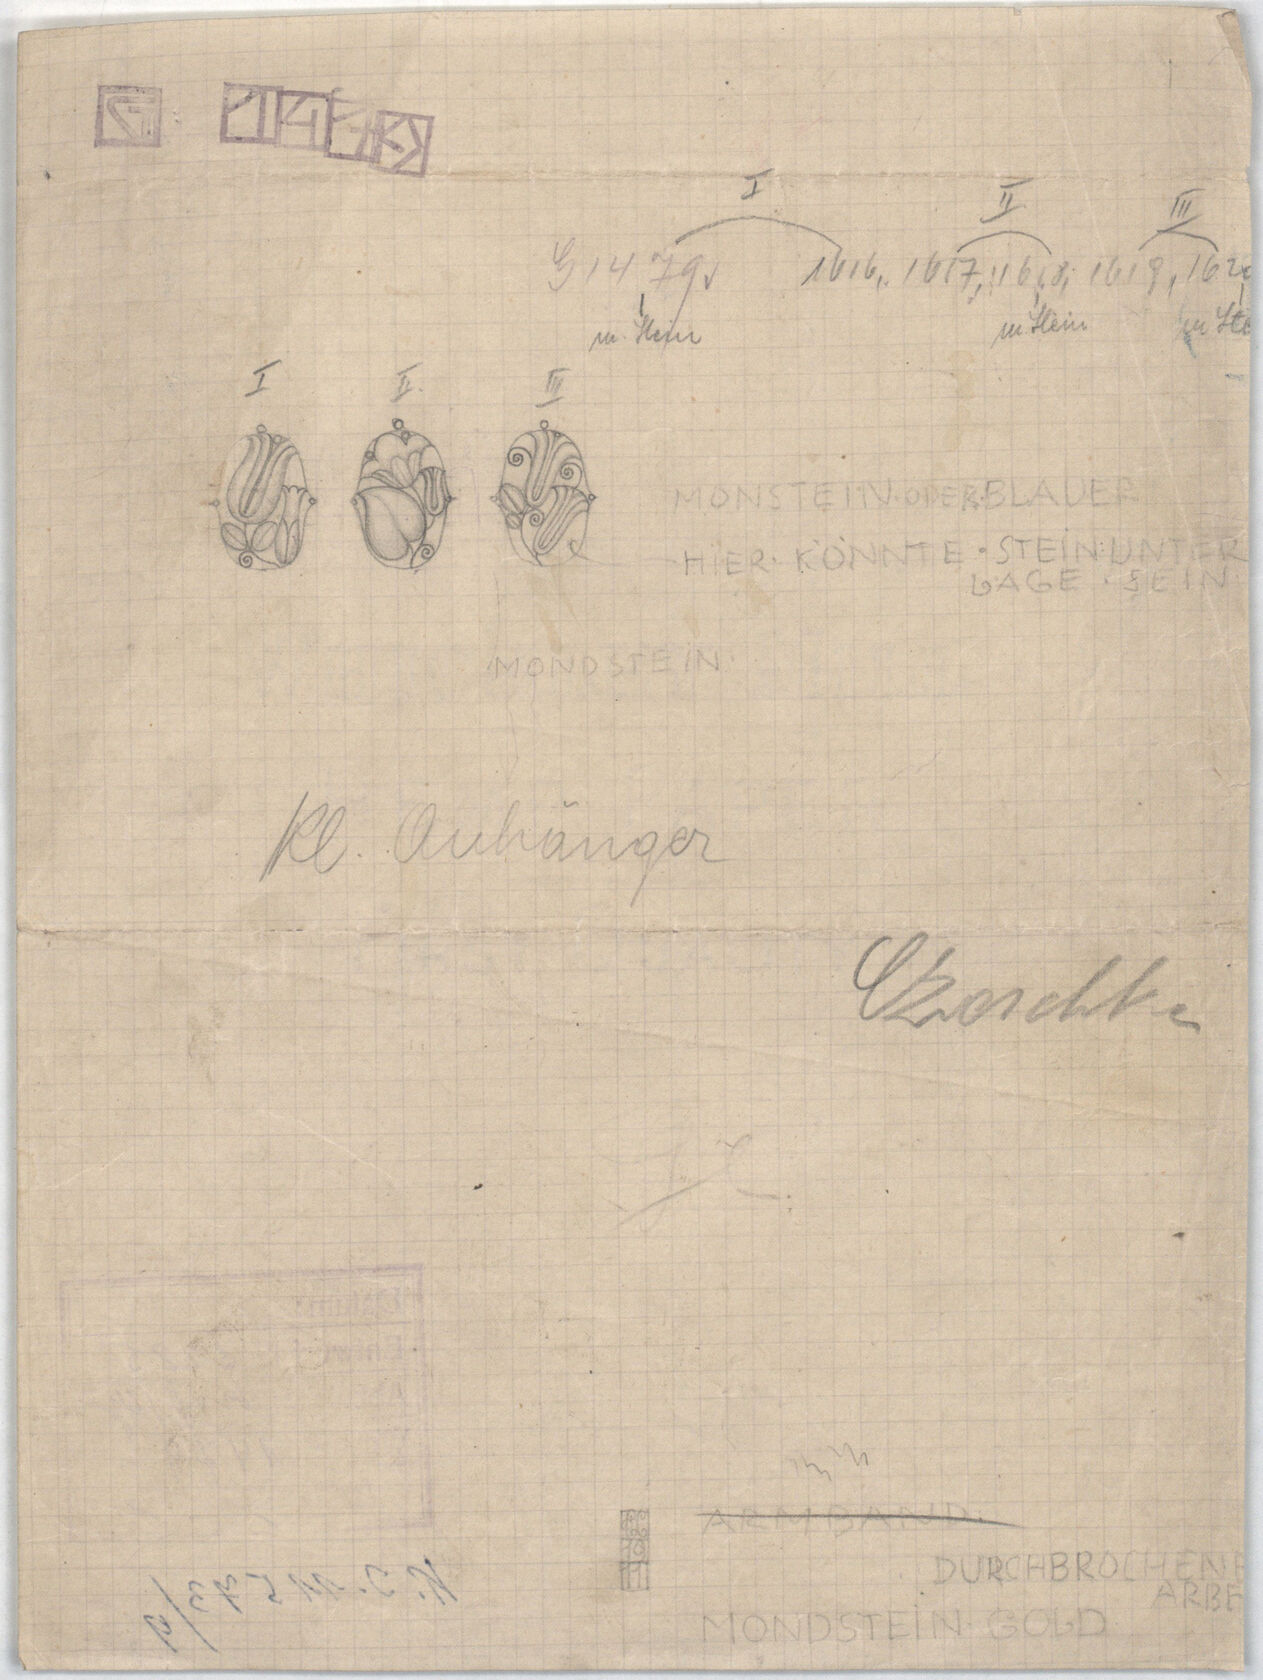 G 1479
I II III
G 1479, 1616, 1617, 1618, 1619, 1620
m. Stein m. Stein m. Ste
I II. III
MONSTEIN·ODER·BLAUER
HIER·KÖNNTE·STEIN·UNTER
LAGE·SEIN·
MONDSTEIN·
Kl. Anhänger
Czeschka
ARMBAND·
DURCHBROCHENE
ARBE
MONDSTEIN·GOLD